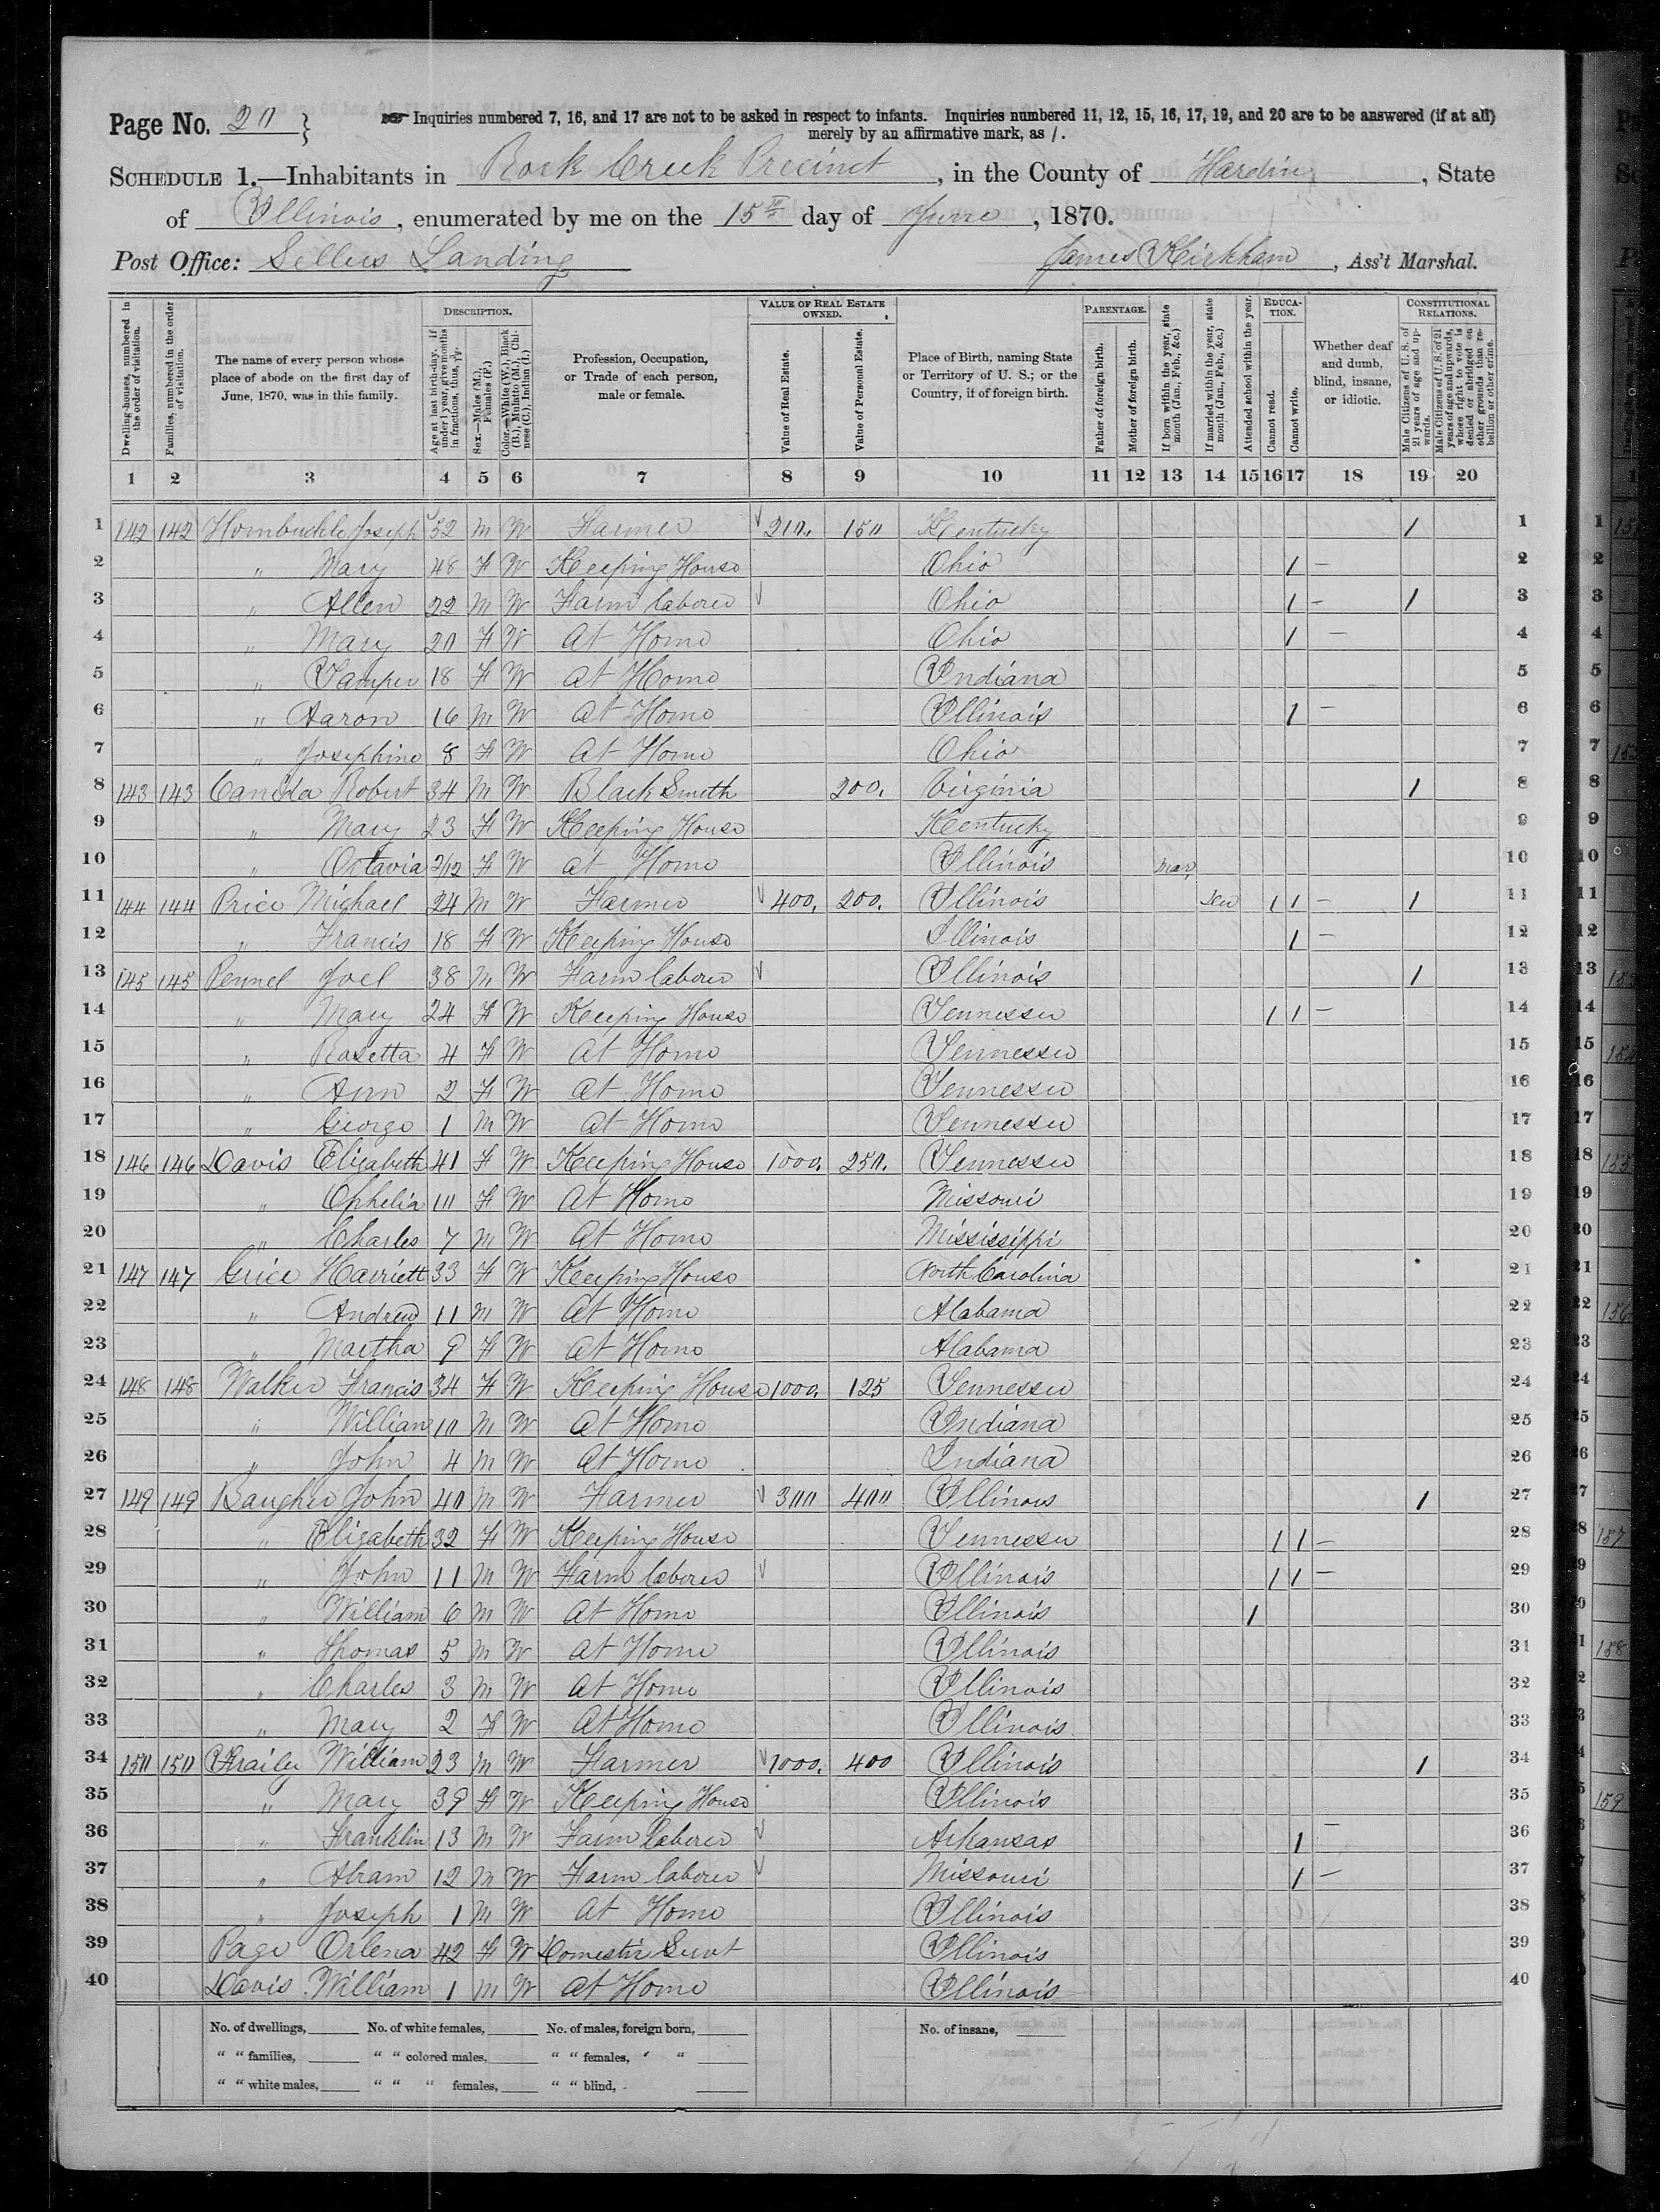 Page No. 20 }
Inquiries numbered 7, 16, and 17 are not to be asked in respect to infants. Inquiries numbered 11, 12, 15, 16, 17, 19, and 20 are to be answered (if at all)
merely by an affirmative mark, as /.
Schedule 1.—Inhabitants in Rock Creek Precinct, in the County of Hardin, State
of Illinois, enumerated by me on the 15th day of June, 1870.
Post Office: Sellers Landing James Kirkham, Ass't Marshal.
Dwelling-houses, numbered in the order of visitation.
Families, numbered in the order of visitation.
The name of every person whose place of abode on the first day of June, 1870, was in this family.
Description.
Age at last birth-day. If under 1 year, give months in fractions, thus, 3/12.
Sex.—Males (M.), Females (F.)
Color.—White (W.), Black (B.), Mulatto (M.), Chinese (C.), Indian (I.)
Profession, Occupation, or Trade of each person, male or female.
Value of Real Estate Owned.
Value of Real Estate.
Value of Personal Estate.
Place of Birth, naming State or Territory of U. S.; or the Country, if of foreign birth.
Parentage.
Father of foreign birth.
Mother of foreign birth.
If born within the year, state month (Jan., Feb., &c.)
If married within the year, state month (Jan., Feb., &c.)
Attended school within the year.
Education.
Cannot read.
Cannot write.
Whether deaf and dumb, blind, insane, or idiotic.
Constitutional Relations.
Male Citizens of U. S. of 21 years of age and upwards.
Male Citizens of U. S. of 21 years of age and upwards, whose right to vote is denied or abridged on other grounds than rebellion or other crime.
1 2 3 4 5 6 7 8 9 10 11 12 13 14 15 16 17 18 19 20
1 142 142 Hornbuckle Joseph 52 M W Farmer 210. 150 Kentucky / 1
2 " Mary 48 F W Keeping House Ohio / – 2
3 " Allen 22 M W Farm laborer Ohio / – / 3
4 " Mary 20 F W At Home Ohio / – 4
5 " 18 F W At Home Indiana 5
6 " Aaron 16 M W At Home Illinois / – 6
7 " Josephine 8 F W At Home Ohio 7
8 143 143 Canida Robert 34 M W Black Smith 200. Virginia / 8
9 " Mary 23 F W Keeping House Kentucky 9
10 " Octavia 2/12 F W at Home Illinois Mar 10
11 144 144 Price Michael 24 M W Farmer 400. 200. Illinois / / – / 11
12 " Francis 18 F W Keeping House Illinois / – 12
13 145 145 Pennel Joel 38 M W Farm laborer Illinois / 13
14 " Mary 24 F W Keeping House Tennessee / / – 14
15 " Rosetta 4 F W At Home Tennessee 15
16 " Ann 2 F W At Home Tennessee 16
17 " George 1 M W At Home Tennessee 17
18 146 146 Davis Elizabeth 41 F W Keeping House 1000. 250. Tennessee 18
19 " Ophelia 10 F W At Home Missouri 19
20 " Charles 7 M W At Home Mississippi 20
21 147 147 Grice Harriett 33 F W Keeping House North Carolina 21
22 " Andrew 11 M W At Home Alabama 22
23 " Martha 9 F W At Home Alabama 23
24 148 148 Walker Francis 34 F W Keeping House 1000. 125 Tennessee 24
25 " William 10 M W At Home Indiana 25
26 " John 4 M W At Home Indiana 26
27 149 149 Baugher John 40 M W Farmer 300 400 Illinois / 27
28 " Elizabeth 32 F W Keeping House Tennessee / / – 28
29 " John 11 M W Farm laborer Illinois / / – 29
30 " William 6 M W At Home Illinois / 30
31 " Thomas 5 M W At Home Illinois 31
32 " Charles 3 M W At Home Illinois 32
33 " Mary 2 F W At Home Illinois 33
34 150 150 Frailey William 23 M W Farmer 1000. 400 Illinois / 34
35 " Mary 39 F W Keeping House Illinois 35
36 " Franklin 13 M W Farm laborer Arkansas / – 36
37 " Abram 12 M W Farm laborer Missouri / – 37
38 " Joseph 1 M W At Home Illinois 38
39 Page Orlena 42 F W Domestic Servt Illinois 39
40 Davis William 1 M W At Home Illinois 40
No. of dwellings, No. of white females, No. of males, foreign born, No. of insane,
" " families, " " colored males, " " females, " "
" " white males, " " " females, " " blind,